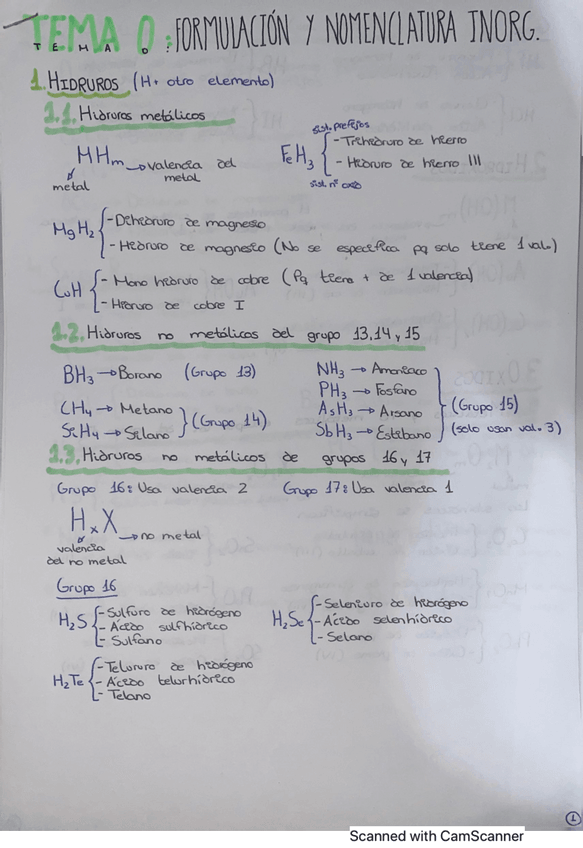 TEMA 0: FORMULACIÓN Y NOMENCLATURA INORG.
TEMA 0:
1. HIDRUROS (H + otro elemento)
1.1. Hidruros metálicos
MHm → valencia del metal
metal
FeH3
sist. prefijos
- Trihidruro de hierro
- Hidruro de hierro III
sist. nº oxid
MgH2
- Dihidruro de magnesio
- Hidruro de magnesio (No se especifica pq solo tiene 1 val.)
CuH
- Mono hidruro de cobre (Pq tiene + de 1 valencia)
- Hidruro de cobre I
1.2. Hidruros no metálicos del grupo 13, 14 y 15
BH3 → Borano (Grupo 13)
CH4 → Metano
SiH4 → Silano
(Grupo 14)
NH3 → Amoniaco
PH3 → Fosfano
AsH3 → Arsano
SbH3 → Estibano
(Grupo 15)
(solo usan val. 3)
1.3. Hidruros no metálicos de grupos 16 y 17
Grupo 16: Usa valencia 2 Grupo 17: Usa valencia 1
HxX → no metal
valencia
del no metal
Grupo 16
H2S
- Sulfuro de hidrógeno
- Ácido sulfhídrico
- Sulfano
H2Se
- Seleniuro de hidrógeno
- Ácido selenhídrico
- Selano
H2Te
- Telururo de hidrógeno
- Ácido telurhídrico
- Telano
1
Scanned with CamScanner